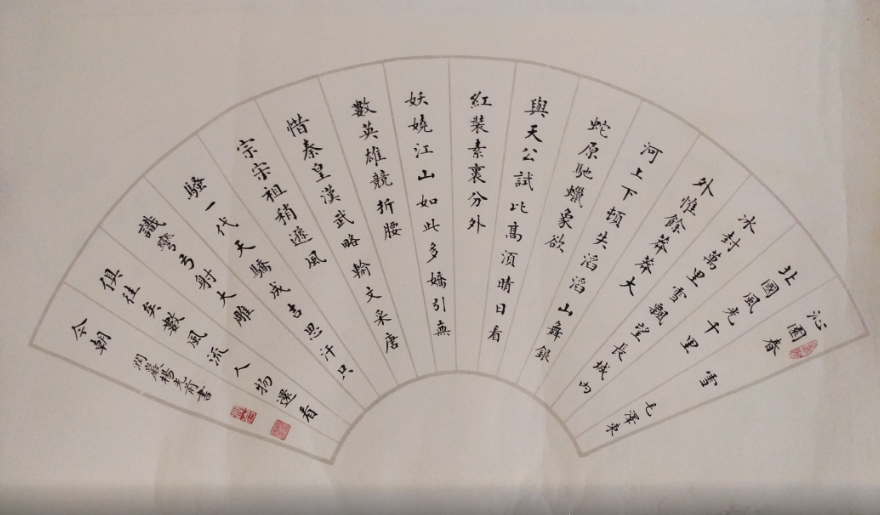 沁園春 雪 毛澤東
北國風光千里
冰封萬里雪飄望長城內
外惟餘莽莽大
河上下頓失滔滔山舞銀
蛇原馳蠟象欲
與天公試比高須晴日看
紅裝素裹分外
妖嬈江山如此多嬌引無
數英雄競折腰
惜秦皇漢武略輸文采唐
宗宋祖稍遜風
騷一代天驕成吉思汗只
識彎弓射大雕
俱往矣數風流人物還看
今朝
楊 書